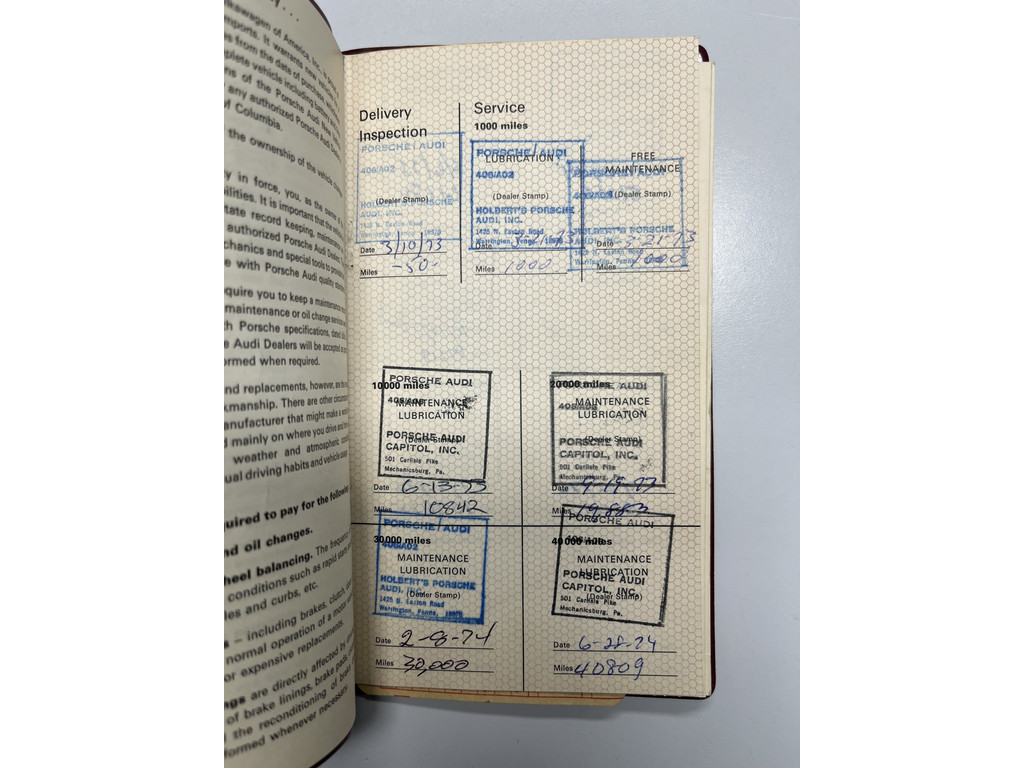 lkswagen of America, Inc., is
mports. It warrants new vehicles
es from the date of purchase,
plete vehicle including battery
ns of the Porsche Audi New
any authorized Porsche Audi
of Columbia.
the ownership of the vehicle
ly in force, you, as the owner of
bilities. It is important that the
tate record keeping, maintenance
authorized Porsche Audi Dealer
chanics and special tools to provide
e with Porsche Audi quality
quire you to keep a maintenance
maintenance or oil change services
h Porsche specifications, dated
e Audi Dealers will be accepted as
ormed when required.
nd replacements, however, are the
kmanship. There are other
anufacturer that might make a
d mainly on where you drive and
weather and atmospheric
ual driving habits and vehicle
quired to pay for the following
nd oil changes.
heel balancing. The frequency
conditions such as rapid starts
les and curbs, etc.
s – including brakes, clutch,
normal operation of a motor
or expensive replacements.
ngs are directly affected by
of brake linings, brake pads,
the reconditioning of brake
formed whenever necessary.
Delivery
Inspection
PORSCHE/AUDI
406/A02
(Dealer Stamp)
HOLBERT'S PORSCHE
AUDI, INC.
1425 N. Easton Road
Warrington, Penna. 18976
Date 3/10/73
Miles -50-
Service
1000 miles
PORSCHE/AUDI
LUBRICATION
406/A02
(Dealer Stamp)
HOLBERT'S PORSCHE
AUDI, INC.
1425 N. Easton Road
Warrington, Penna. 18976
Date 3-21-73
Miles 1000
FREE
MAINTENANCE
PORSCHE/AUDI
406/A02
(Dealer Stamp)
HOLBERT'S PORSCHE
AUDI, INC.
1425 N. Easton Road
Warrington, Penna. 18976
Date 3-21-73
Miles 1000
PORSCHE AUDI
10000 miles
406/A08
MAINTENANCE
LUBRICATION
PORSCHE AUDI
(Dealer Stamp)
CAPITOL, INC.
501 Carlisle Pike
Mechanicsburg, Pa.
Date 6-13-73
Miles 10842
PORSCHE AUDI
20000 miles
406/A08
MAINTENANCE
LUBRICATION
PORSCHE AUDI
(Dealer Stamp)
CAPITOL, INC.
501 Carlisle Pike
Mechanicsburg, Pa.
Date 9-19-73
Miles 19,882
PORSCHE/AUDI
30000 miles
406/A02
MAINTENANCE
LUBRICATION
HOLBERT'S PORSCHE
AUDI, INC.
(Dealer Stamp)
1425 N. Easton Road
Warrington, Penna. 18976
Date 2-8-74
Miles 30,000
PORSCHE AUDI
40000 miles
406/A08
MAINTENANCE
LUBRICATION
PORSCHE AUDI
CAPITOL, INC.
(Dealer Stamp)
501 Carlisle Pike
Mechanicsburg, Pa.
Date 6-28-74
Miles 40809